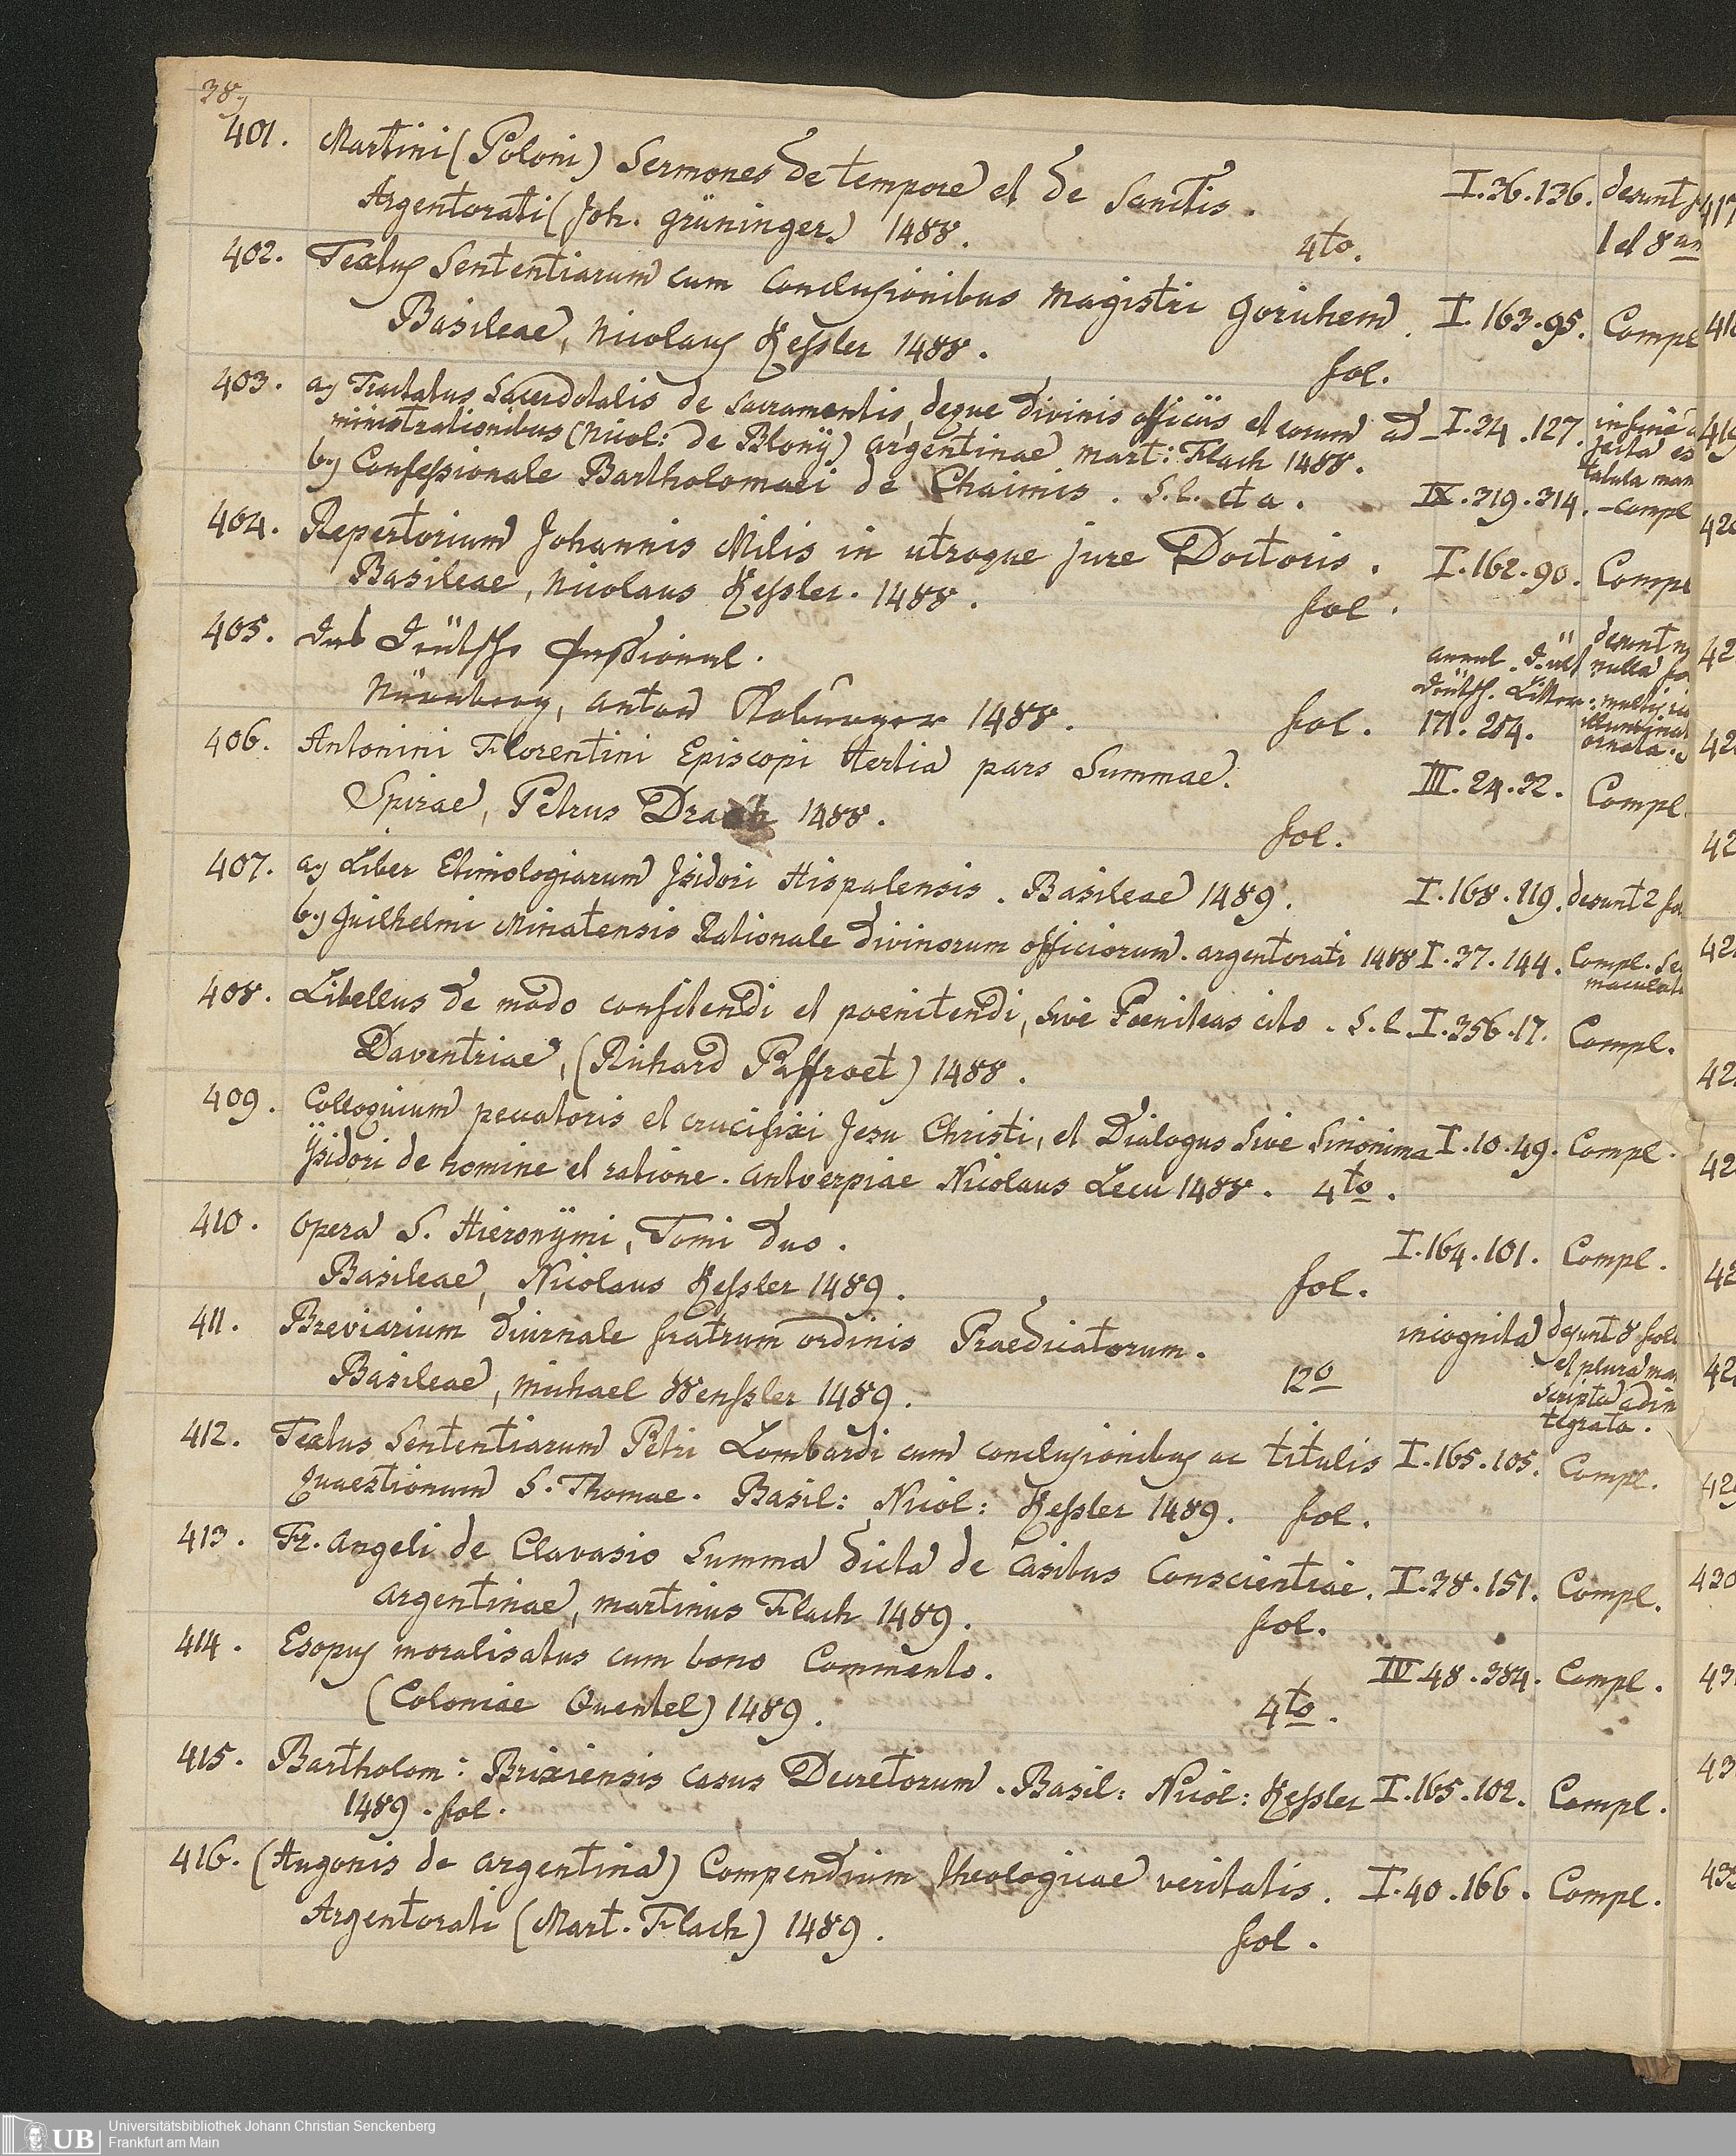 38.
401. Martini (Poloni) Sermones de tempore et de Sanctis. I.36.136. desunt
Argentorati (Joh. Grüninger) 1488. 4to. 1 et 8
402. Textus Sententiarum cum conclusionibus Magistri Gorichem. I.163.95. Compl
Basileae, Nicolaus Kessler 1488. fol.
403. a) Tractatus Sacerdotalis de Sacramentis, deque divinis officiis et eorum ad- I.34.127. in fine
ministrationibus (Nicol: de Blony) Argentinae Mart: Flach 1488.
b) Confessionale Bartholomaei de Chaimis. S.l. et a. IX.319.314. – Compl
404. Repertorium Johannis Milis in utroque jure Doctoris. I.162.90. Compl
Basileae, Nicolaus Kessler. 1488. fol.
405. Das deütsche Passional. desunt
Nürnberg, Anton Koburger 1488. fol. 171.254.
406. Antonini Florentini Episcopi tertia pars Summae. III.24.32. Compl.
Spirae, Petrus Drach 1488. fol.
407. a) Liber Etimologiarum Isidori Hispalensis. Basileae 1489. I.168.119. desunt 2
b) Guilhelmi Minatensis Rationale divinorum officiorum. Argentorati 1488 I.37.144. Compl.
408. Libellus de modo confitendi et poenitendi, sive Poeniteas cito. S.l. I.356.17. Compl.
Daventriae, (Richard Paffroet) 1488.
409. Colloquium peccatoris et crucifixi Jesu Christi, et Dialogus sive Sinonima I.10.49. Compl.
Ÿsidori de homine et ratione. Antverpiae Nicolaus Leeu 1488. 4to.
410. Opera S. Hieronÿmi, Tomi duo. I.164.101. Compl.
Basileae, Nicolaus Kessler 1489. fol.
411. Breviarium diurnale fratrum ordinis Praedicatorum. incognita desunt 8 fol
Basileae, Michael Wenssler 1489. 12o et plura
scripta adin
tegrata.
412. Textus Sententiarum Petri Lombardi cum conclusionibus ac titulis I.165.105. Compl.
Quaestionum S. Thomae. Basil: Nicol: Kessler 1489. fol.
413. Fr. Angeli de Clavasio Summa dicta de Casibus Conscientiae. I.38.151. Compl.
Argentinae, Martinus Flach 1489. fol.
414. Esopus moralisatus cum bono Commento. IV.48.384. Compl.
(Coloniae Quentel) 1489. 4to.
415. Bartholom: Brixiensis casus Decretorum. Basil: Nicol: Kessler I.165.102. Compl.
1489. fol.
416. (Hugonis de Argentina) Compendium theologicae veritatis. I.40.166. Compl.
Argentorati (Mart. Flach) 1489. fol.
UB Universitätsbibliothek Johann Christian Senckenberg
Frankfurt am Main